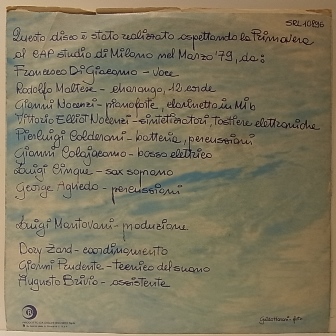 SRL 10896
Questo disco è stato realizzato aspettando la Primavera
al CAP studio di Milano nel Marzo '79, da:
Francesco Di Giacomo - voce
Rodolfo Maltese - charango, 12 corde
Gianni Nocenzi - pianoforte, clarinetto in Mib
Vittorio Elliot Nocenzi - sintetizzatori, tastiere elettroniche
Pierluigi Calderoni - batteria, percussioni
Gianni Colajacomo - basso elettrico
Luigi Cinque - sax soprano
George Aghedo - percussioni
Luigi Mantovani - produzione
Dory Zard - coordinamento
Gianni Prudente - tecnico del suono
Augusto Brivio - assistente